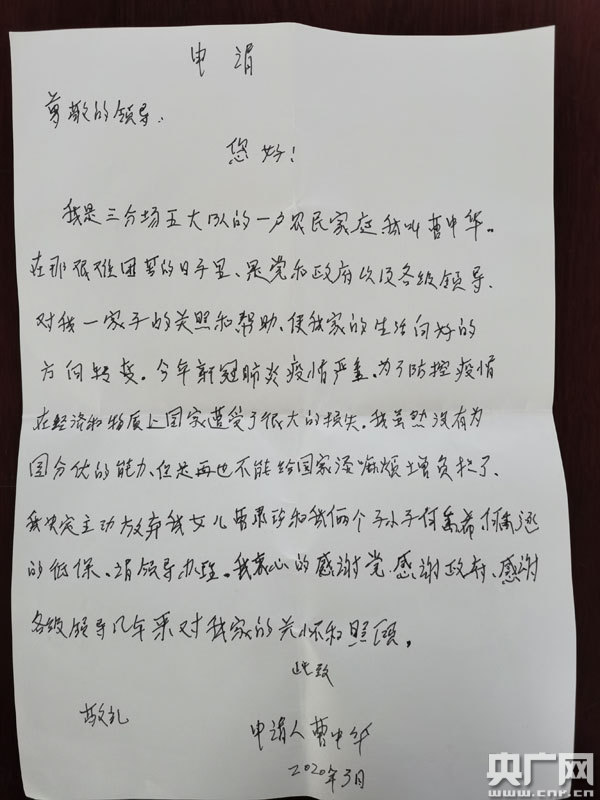 申请
尊敬的领导.
您好!
我是三分场五大队的一户农民家庭我叫曹中华。
在那很难困苦的日子里、是党和政府以及各级领导.
对我一家子的关照和帮助、使我家的生活向好的
方向转变。今年新冠肺炎疫情严重、为了防控疫情
在经济和物质上国家遭受了很大的损失。我虽然没有为
国分忧的能力、但是再也不能给国家添麻烦增负担了、
我决定主动放弃我女儿曹和我俩个孙子何何
的低保、请领导办理。我衷心的感谢党.感谢政府、感谢
各级领导几年来对我家的关怀和照顾。
此致
敬礼
申请人曹中华
2020年3月
央广网
www.cnr.cn